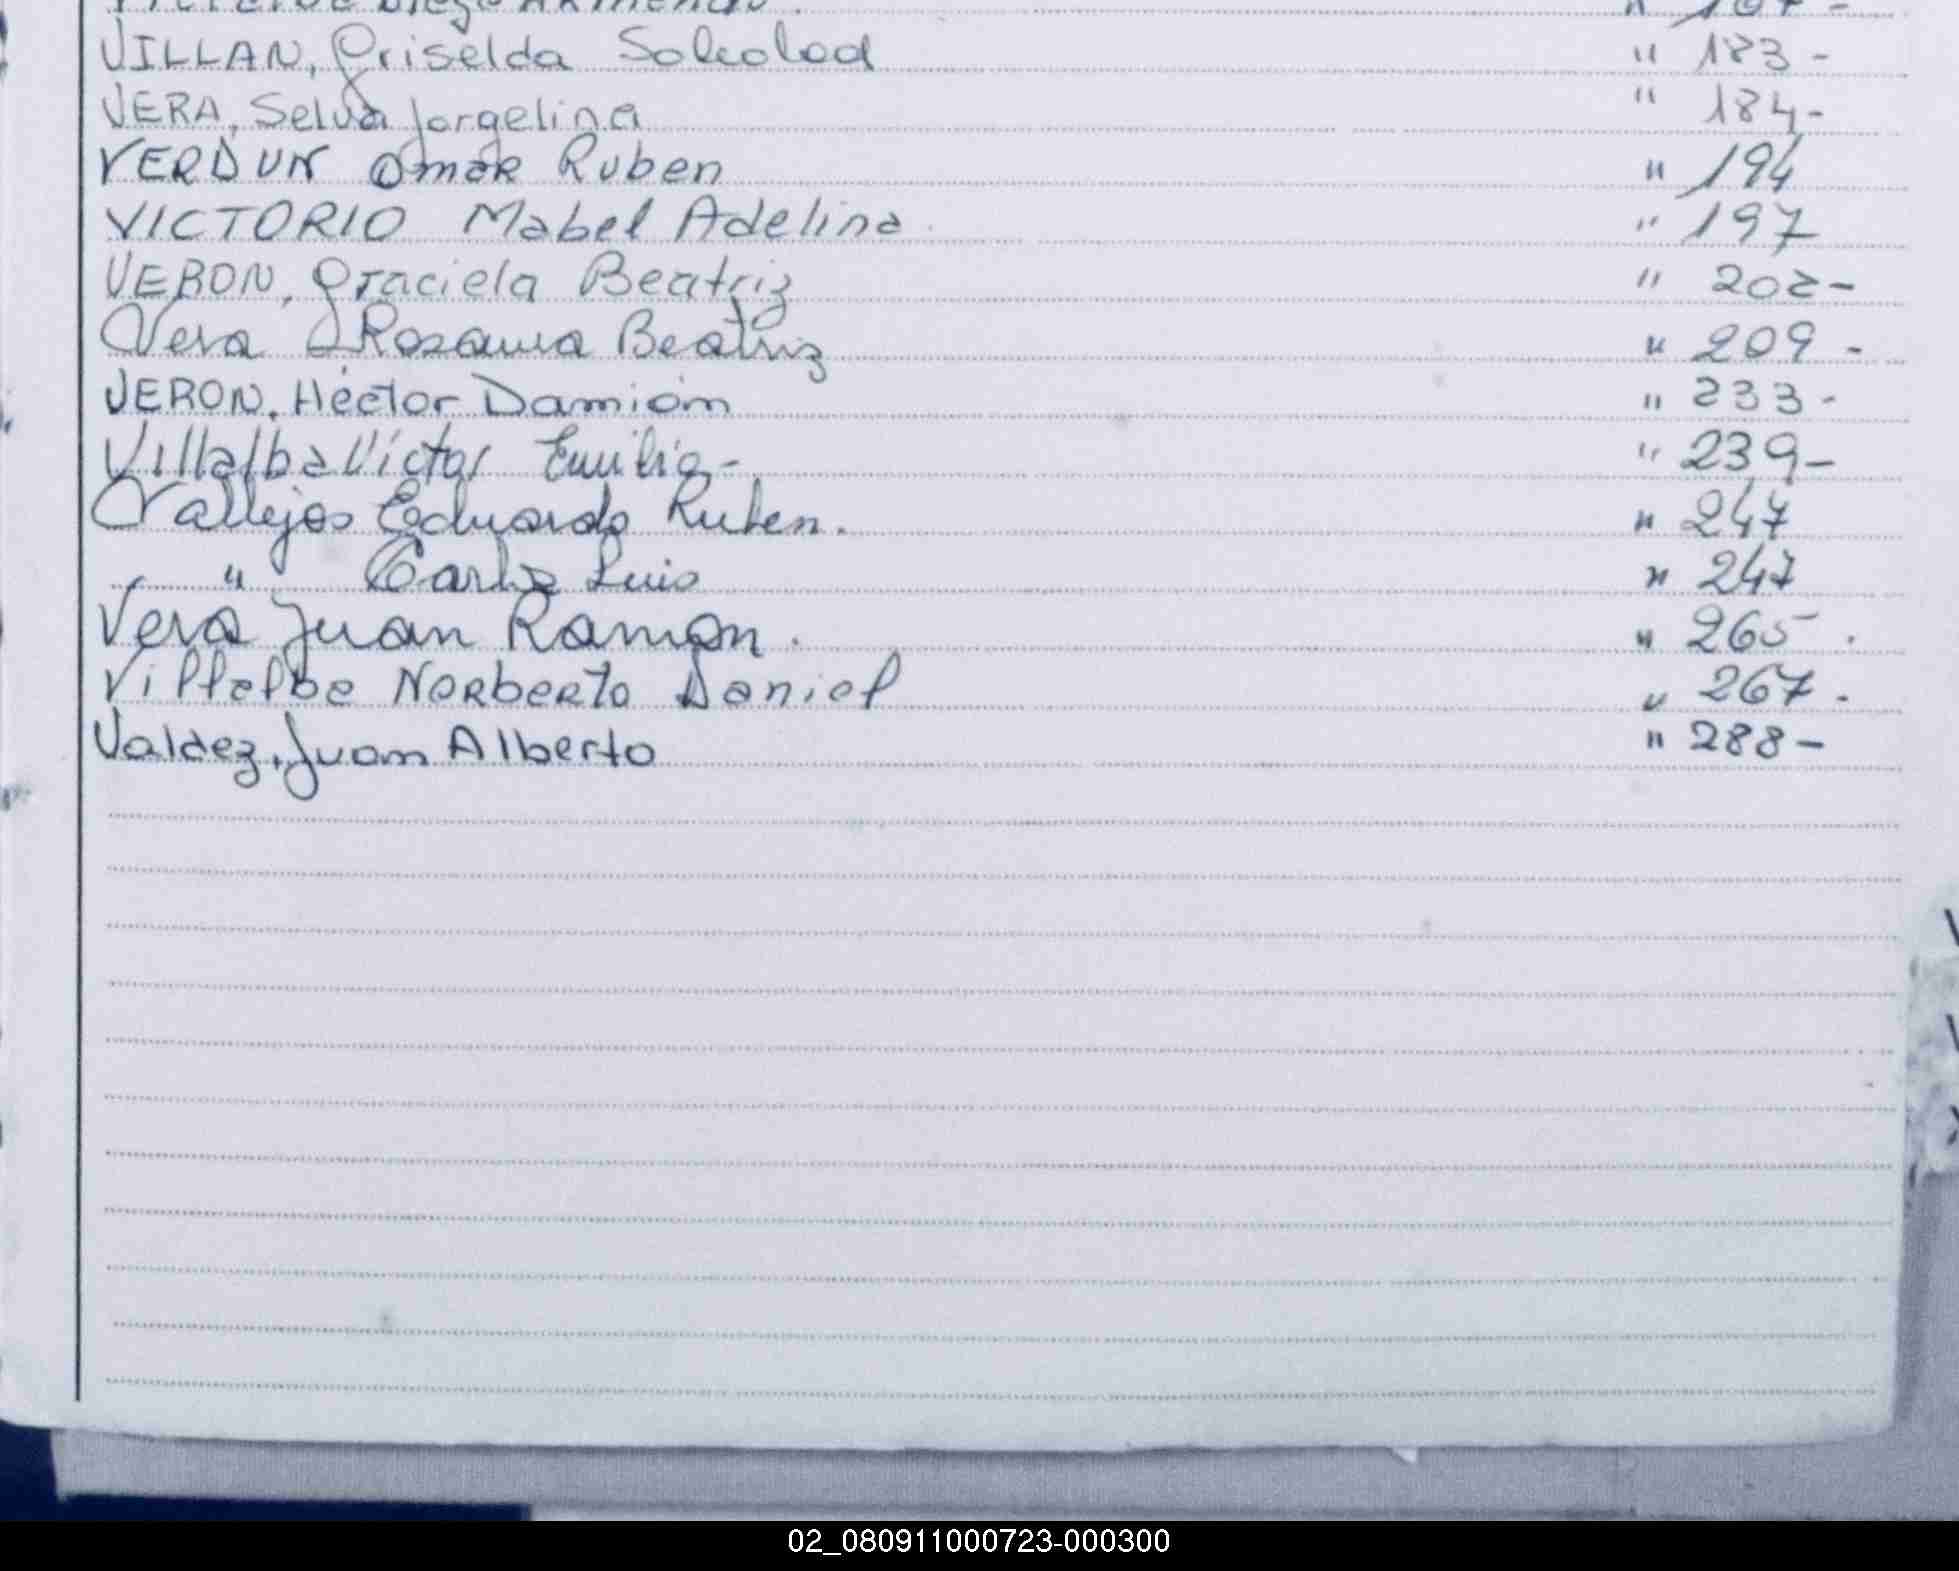 Diego Armando . "
VILLAN, Griselda Soledad " 183 -
VERA, Selva Jorgelina " 184 -
VERDUN Omar Ruben " 194
VICTORIO Mabel Adelina . " 197
VERON, Graciela Beatriz " 202 -
Vera Rosanna Beatriz " 209 -
VERON, Héctor Damián " 233 -
Villalba Víctor Emilio - " 239 -
Vallejos Eduardo Ruben . " 247
" Carlos Luis " 247
Vera Juan Ramon . " 265 .
Villalba Norberto Daniel " 267 .
Valdez, Juan Alberto " 288 -
02_080911000723-000300